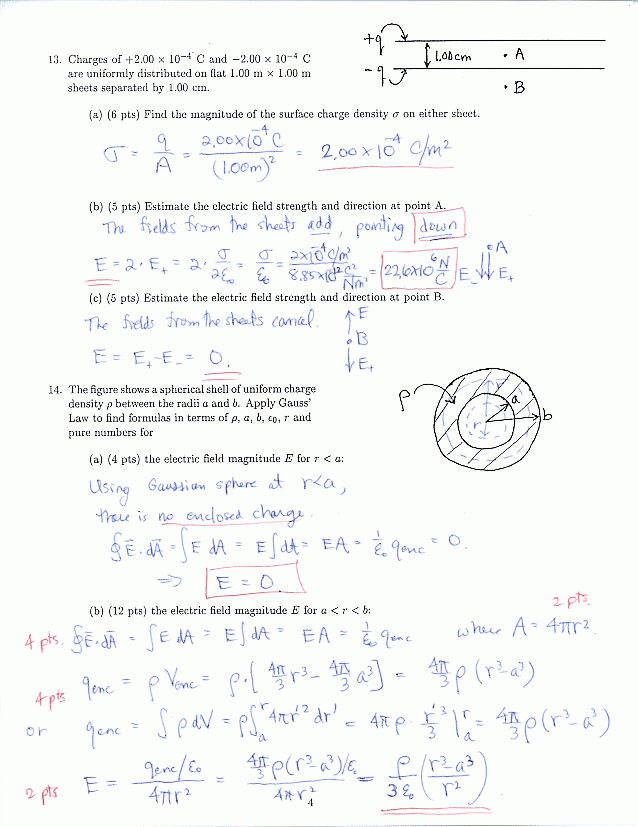 13. Charges of +2.00 × 10⁻⁴ C and −2.00 × 10⁻⁴ C
are uniformly distributed on flat 1.00 m × 1.00 m
sheets separated by 1.00 cm.
+q
1.00cm
• A
-q
• B
(a) (6 pts) Find the magnitude of the surface charge density σ on either sheet.
σ = q/A = 2.00×10⁻⁴ C/(1.00m)² = 2.00×10⁻⁴ C/m²
(b) (5 pts) Estimate the electric field strength and direction at point A.
The fields from the sheets add, pointing down
E = 2·E₊ = 2·σ/2ε₀ = σ/ε₀ = 2×10⁻⁴ C/m²/8.85×10⁻¹² C²/Nm² = 22.6×10⁶ N/C
•A
E₋ ↓↓ E₊
(c) (5 pts) Estimate the electric field strength and direction at point B.
The fields from the sheets cancel.
↑E
•B
↓E₊
E = E₊-E₋ = 0.
14. The figure shows a spherical shell of uniform charge
density ρ between the radii a and b. Apply Gauss'
Law to find formulas in terms of ρ, a, b, ε₀, r and
pure numbers for
ρ
a
b
r
(a) (4 pts) the electric field magnitude E for r < a:
Using Gaussian sphere at r<a,
there is no enclosed charge.
∮E⃗·dA⃗ = ∫E dA = E∫dA = EA = 1/ε₀ qenc = 0.
⇒ E = 0
(b) (12 pts) the electric field magnitude E for a < r < b:
2 pts.
4 pts. ∮E⃗·dA⃗ = ∫E dA = E∫dA = EA = 1/ε₀ qenc where A = 4πr².
4 pts qenc = ρ Venc = ρ·[4π/3 r³ - 4π/3 a³] = 4π/3 ρ(r³-a³)
or qenc = ∫ρdV = ρ∫ₐʳ4πr'²dr' = 4πρ·r'³/3|ₐʳ = 4π/3 ρ(r³-a³)
2 pts E = qenc/ε₀/4πr² = 4π/3 ρ(r³-a³)/ε₀/4πr² = ρ/3ε₀ (r³-a³/r²)
4